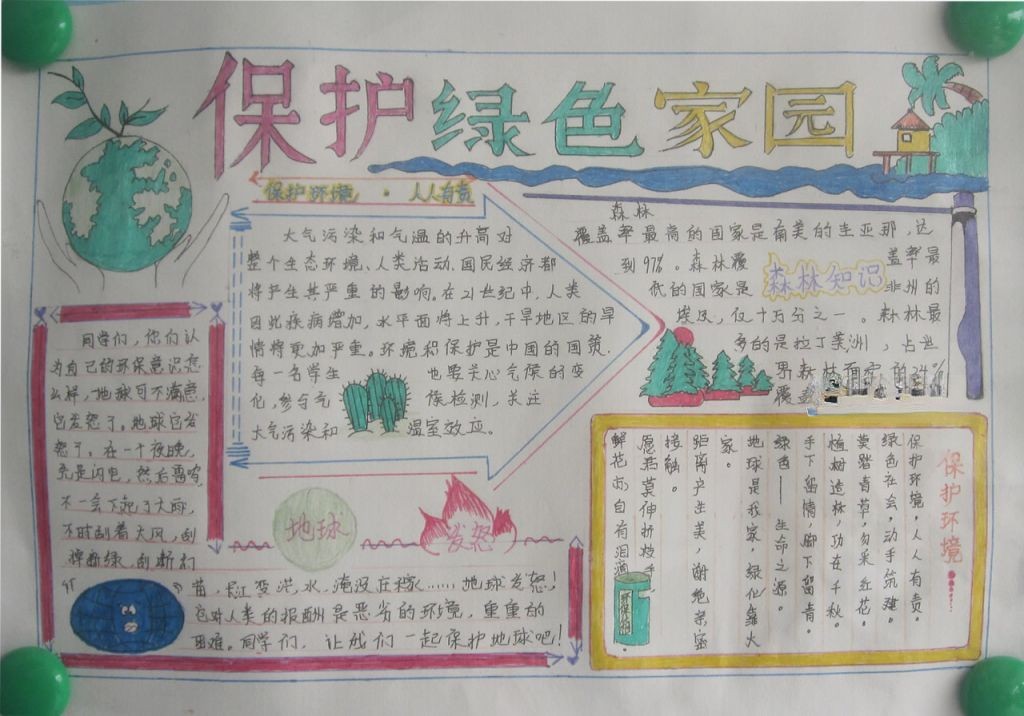 保护绿色家园
保护环境·人人有责
大气污染和气温的升高对
整个生态环境、人类活动、国民经济都
将产生其严重的影响。在21世纪中，人类
因此疾病增加，水平面将上升，干旱地区的旱
情将更加严重。环境积保护是中国的国策，
每一名学生也要关心气候的变
化，参与气候检测，关注
大气污染和温室效应。
森林
覆盖率最高的国家是南美的圭亚那，达
到97%。森林覆盖率最
低的国家是非州的
埃及，仅十万分之一。森林最
多的是拉丁美洲，占世
界森林面积的24%
覆盖
森林知识
同学们，你们认
为自己的环保意识怎
么样，地球可不满意，
它发怒了。地球它发
怒了。在一个夜晚，
先是闪电，然后雷鸣
不一会下起了大雨，
不时刮着大风，刮
刮断们
地球
发怒
苗，彩虹变洪水，淹没庄稼……地球发怒！
它对人类的报酬是恶劣的环境，重重的
困难。同学们，让我们一起保护地球吧！
保护环境……
保护环境，人人有责。
绿色社会，动手筑建。
莫踏青草，勿采红花。
植树造林，功在千秋。
手下留情，脚下留青。
绿色——生命之源。
地球是我家，绿化靠大
家。
距离产生美，谢绝亲密
接触。
愿君莫伸折枝手
鲜花亦自有泪滴。
环保自润